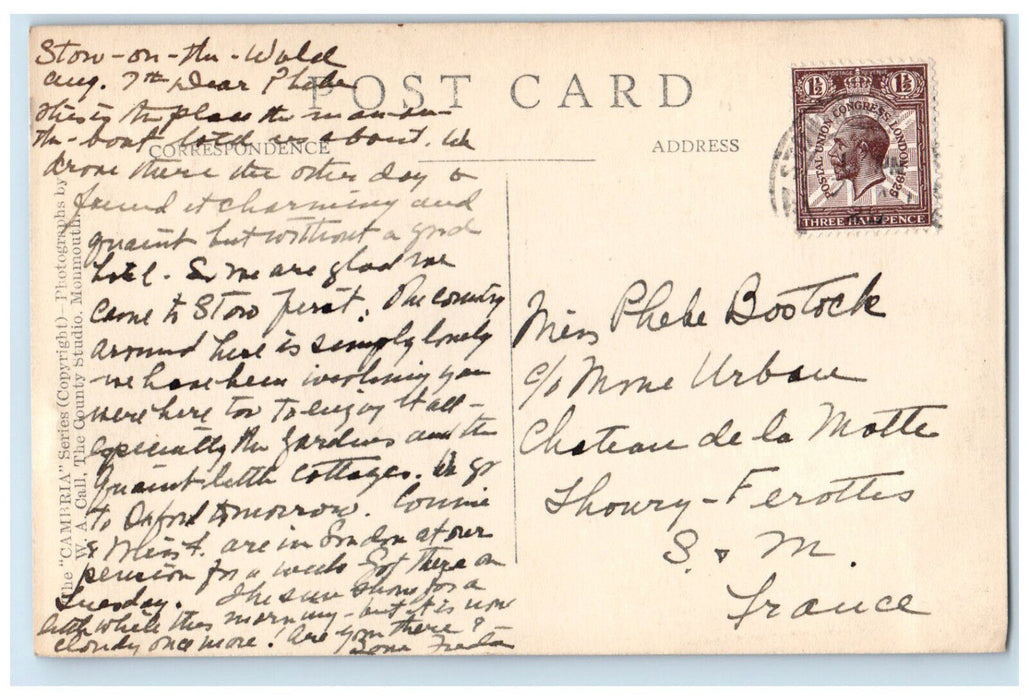 Stow-on-the-Wold
Aug. 7th Dear Phebe
This is the place the man-on-
the-boat told us about. We
drove there the other day &
found it charming and
quaint but without a good
hotel. So we are glad we
came to Stow first. The country
around here is simply lovely
- we have been wishing you
were here too to enjoy it all -
especially the gardens and the
quaint little cottages. We go
to Oxford tomorrow. Connie
& Miss F. are in London at our
pension for a week. Got there on
Tuesday. The sun shone for a
little while this morning - but it is now
cloudy once more! Are you there?
POST CARD
CORRESPONDENCE
ADDRESS
The "CAMBRIA" Series (Copyright)—Photographs by
W. A. Call, The County Studio, Monmouth.
POSTAGE REVENUE
1½ 1½
POSTAL UNION CONGRESS LONDON 1929
THREE HALFPENCE
Miss Phebe Bostock
c/o Mme Urbain
Chateau de la Motte
Thoury-Ferottes
S. & M.
France